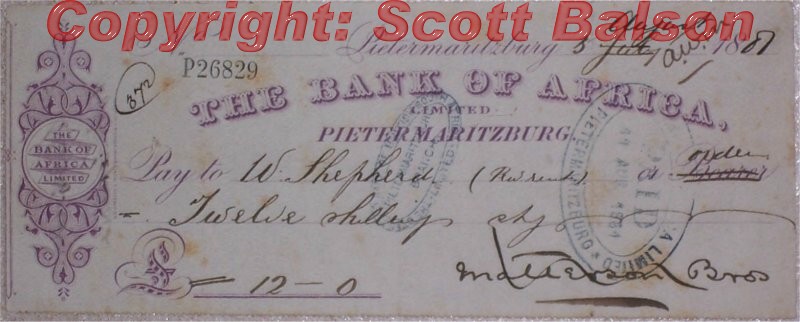 Copyright: Scott Balson
August
Pietermaritzburg 5 July 1881
P26829
372
THE BANK OF AFRICA,
LIMITED
PIETERMARITZBURG
THE
BANK OF
AFRICA
LIMITED
Pay to W. Shepherd or Bearer
order
Twelve shillings
£ 12-0
Matterson Bros
PIETERMARITZBURG
PAID
AUG 1881
A LIMITED